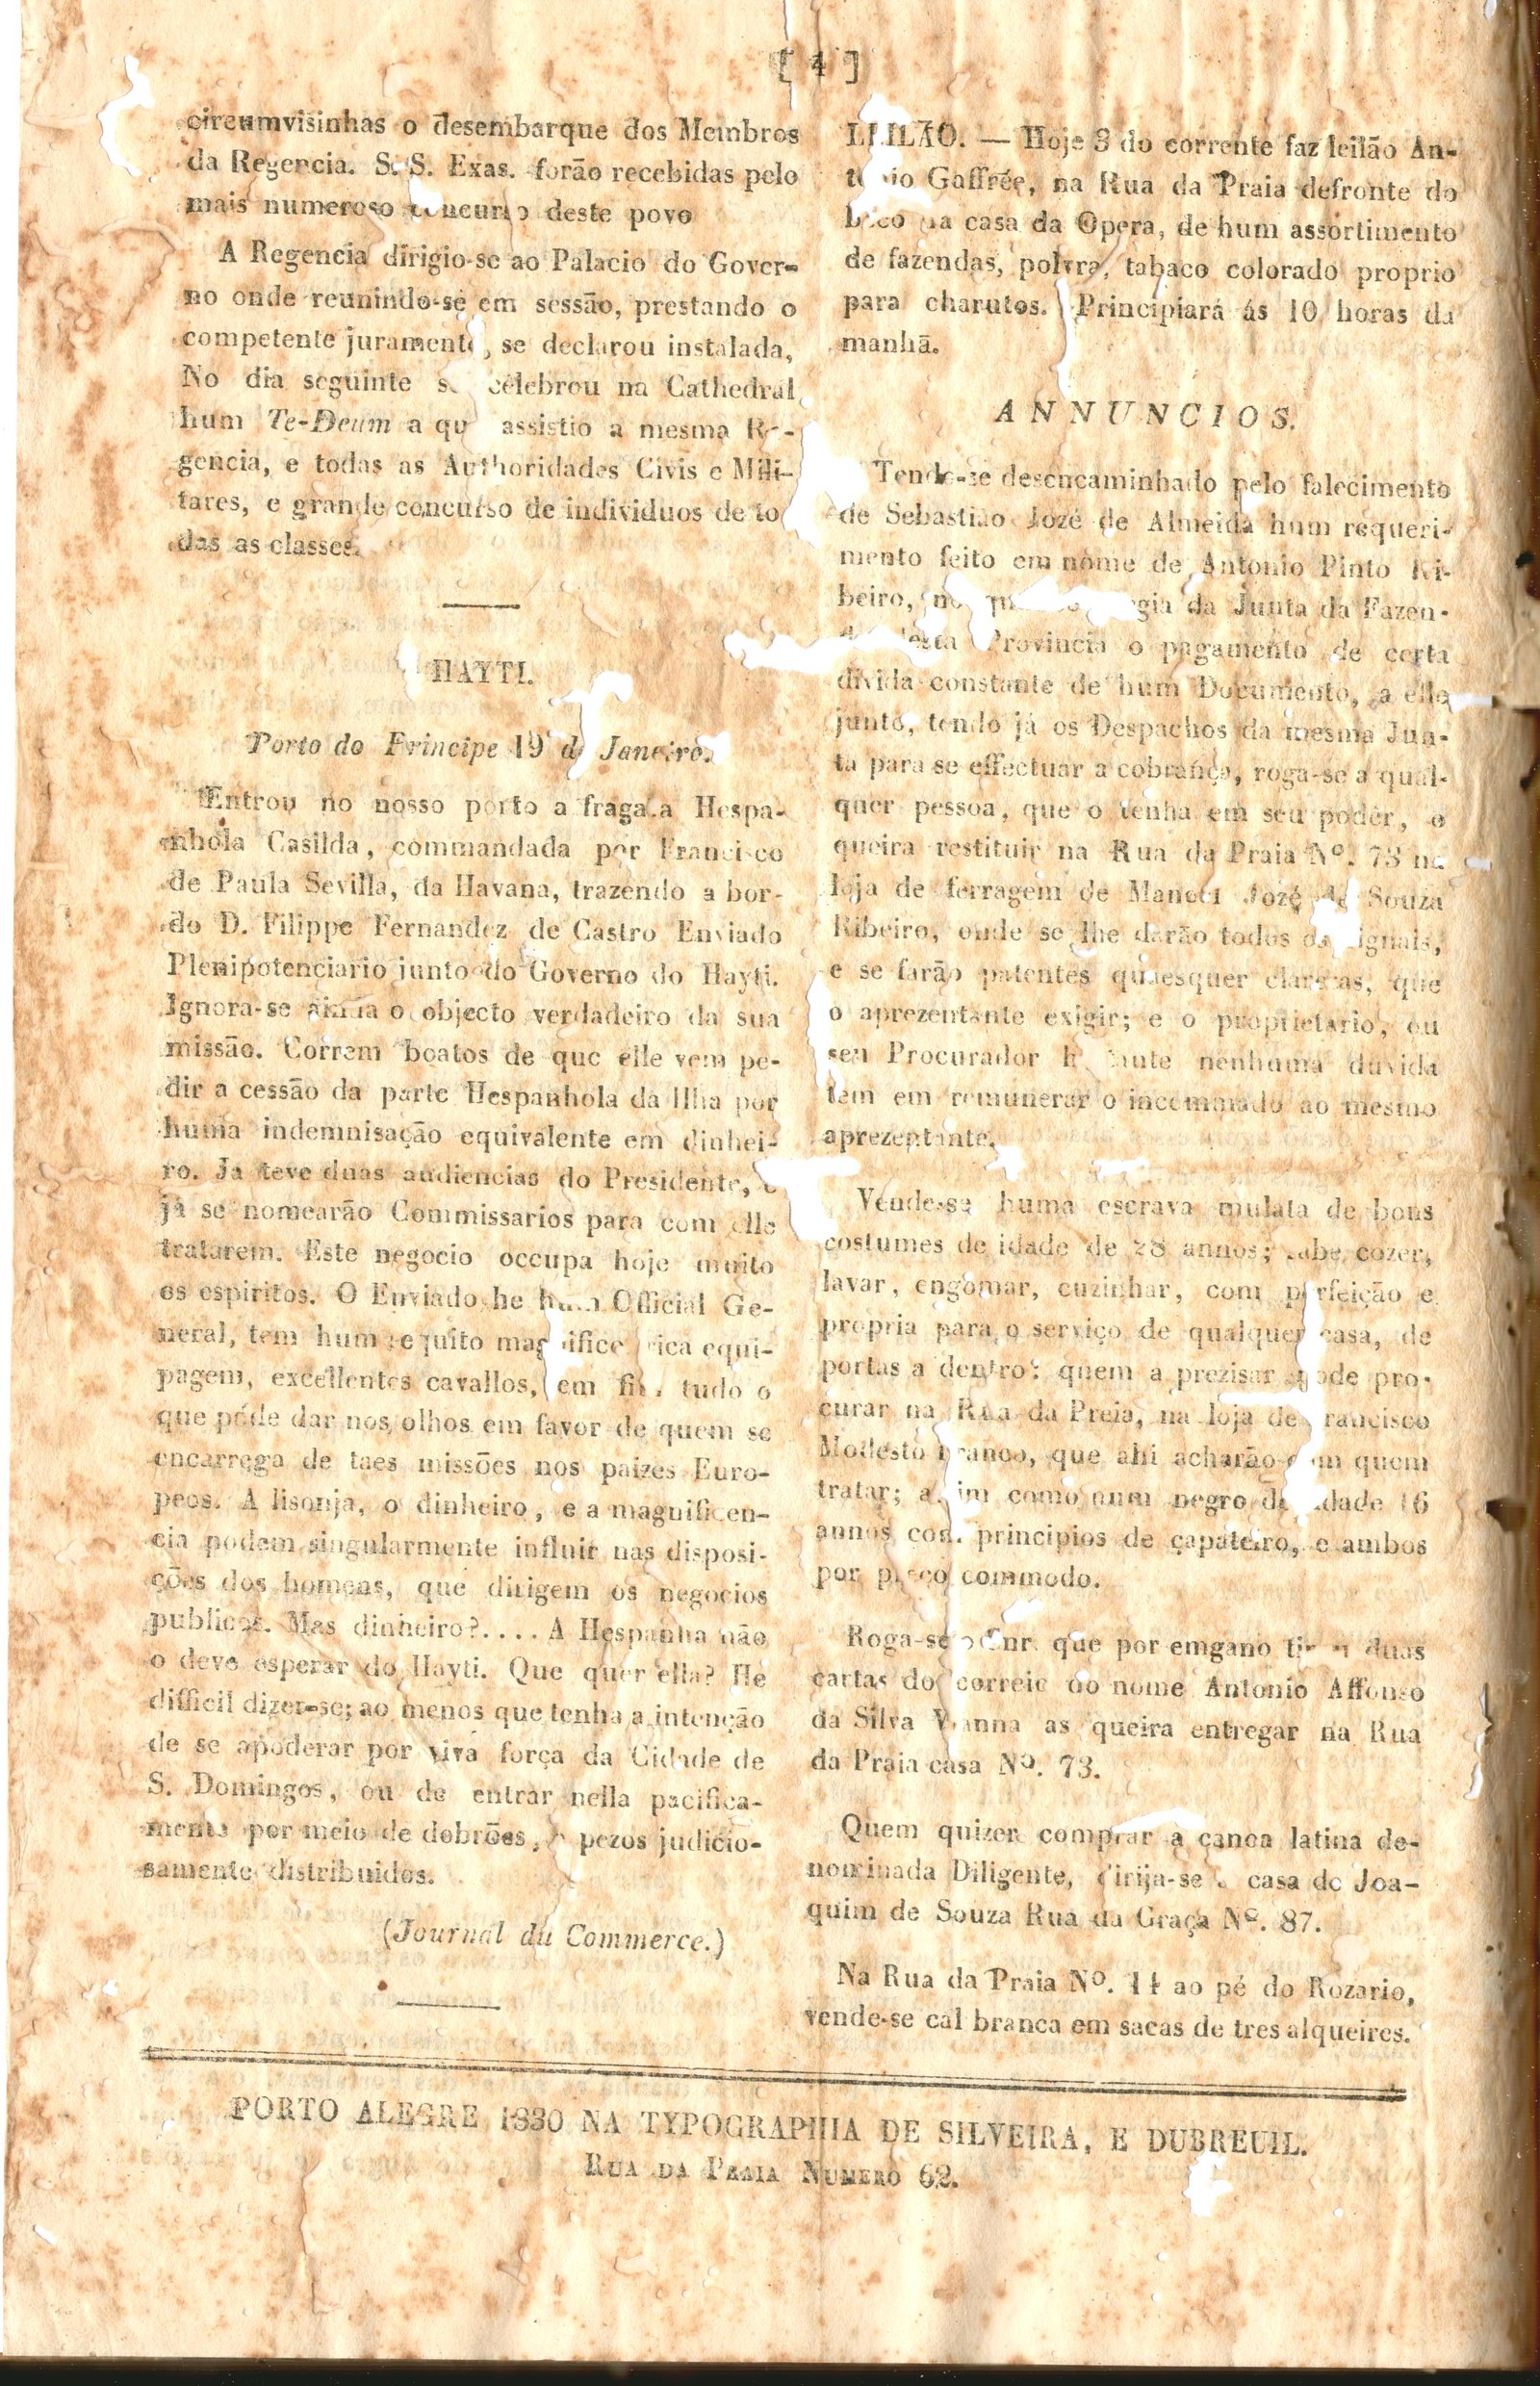 [ 4 ]
circumvisinhas o desembarque dos Membros
da Regencia. S. S. Exas. forão recebidas pelo
mais numeroso concurso deste povo
A Regencia dirigio-se ao Palacio do Gover-
no onde reunindo-se em sessão, prestando o
competente juramento, se declarou instalada,
No dia seguinte se celebrou na Cathedral
hum Te-Deum a que assistio a mesma Re-
gencia, e todas as Authoridades Civis e Mili-
tares, e grande concurso de individuos de to
das as classes.
HAYTI.
Porto do Principe 19 de Janeiro.
Entrou no nosso porto a fragata Hespa-
nhola Casilda, commandada por Francisco
de Paula Sevilla, da Havana, trazendo a bor-
do D. Filippe Fernandez de Castro Enviado
Plenipotenciario junto do Governo do Hayti.
Ignora-se ainda o objecto verdadeiro da sua
missão. Correm boatos de que elle vem pe-
dir a cessão da parte Hespanhola da Ilha por
huma indemnisação equivalente em dinhei-
ro. Ja teve duas audiencias do Presidente, e
já se nomearão Commissarios para com elle
tratarem. Este negocio occupa hoje muito
os espiritos. O Enviado he hum Official Ge-
neral, tem hum sequito magnifico rica equi-
pagem, excellentes cavallos, em fim tudo o
que póde dar nos olhos em favor de quem se
encarrega de taes missões nos paizes Euro-
peos. A lisonja, o dinheiro, e a magnificen-
cia podem singularmente influir nas disposi-
ções dos homens, que dirigem os negocios
publicos. Mas dinheiro?.... A Hespanha não
o deve esperar do Hayti. Que quer ella? He
difficil dizer-se; ao menos que tenha a intenção
de se apoderar por viva força da Cidade de
S. Domingos, ou de entrar nella pacifica-
mente por meio de dobrões, e pezos judicio-
samente distribuidos.
(Journal du Commerce.)
LEILÃO. — Hoje 3 do corrente faz leilão An-
tonio Gaffrée, na Rua da Praia defronte do
beco da casa da Opera, de hum assortimento
de fazendas, polvra, tabaco colorado proprio
para charutos. Principiará ás 10 horas da
manhã.
ANNUNCIOS.
Tendo-se desencaminhado pelo falecimento
de Sebastião Jozé de Almeida hum requeri-
mento feito em nome de Antonio Pinto Ri-
beiro, no da Junta da Fazen-
desta Provincia o pagamento de certa
divida constante de hum Documento, a elle
junto, tendo já os Despachos da mesma Jun-
ta para se effectuar a cobrança, roga-se a qual-
quer pessoa, que o tenha em seu poder, o
queira restituir na Rua da Praia Nº. 73 na
loja de ferragem de Manoel Jozé de Souza
Ribeiro, onde se lhe darão todos os signais,
e se farão patentes quaesquer clarezas, que
o aprezentante exigir; e o proprietario, ou
seu Procurador bastante nenhuma duvida
tem em remunerar o incommodo ao mesmo
aprezentante.
Vende-se huma escrava mulata de bons
costumes de idade de 28 annos; sabe cozer,
lavar, engomar, cuzinhar, com perfeição e
propria para o serviço de qualquer casa, de
portas a dentro: quem a prezisar pode pro-
curar na Rua da Preia, na loja de Francisco
Modesto Franco, que ahi acharão com quem
tratar; assim como hum negro de idade 16
annos com principios de çapateiro, e ambos
por preço commodo.
Roga-se o Snr. que por emgano tirou duas
cartas do correio do nome Antonio Affonso
da Silva Vianna as queira entregar na Rua
da Praia casa Nº. 73.
Quem quizer comprar a canoa latina de-
nominada Diligente, dirija-se a casa de Joa-
quim de Souza Rua da Graça Nº. 87.
Na Rua da Praia Nº. 14 ao pé do Rozario,
vende-se cal branca em sacas de tres alqueires.
PORTO ALEGRE 1830 NA TYPOGRAPHIA DE SILVEIRA, E DUBREUIL.
RUA DA PRAIA NUMERO 62.